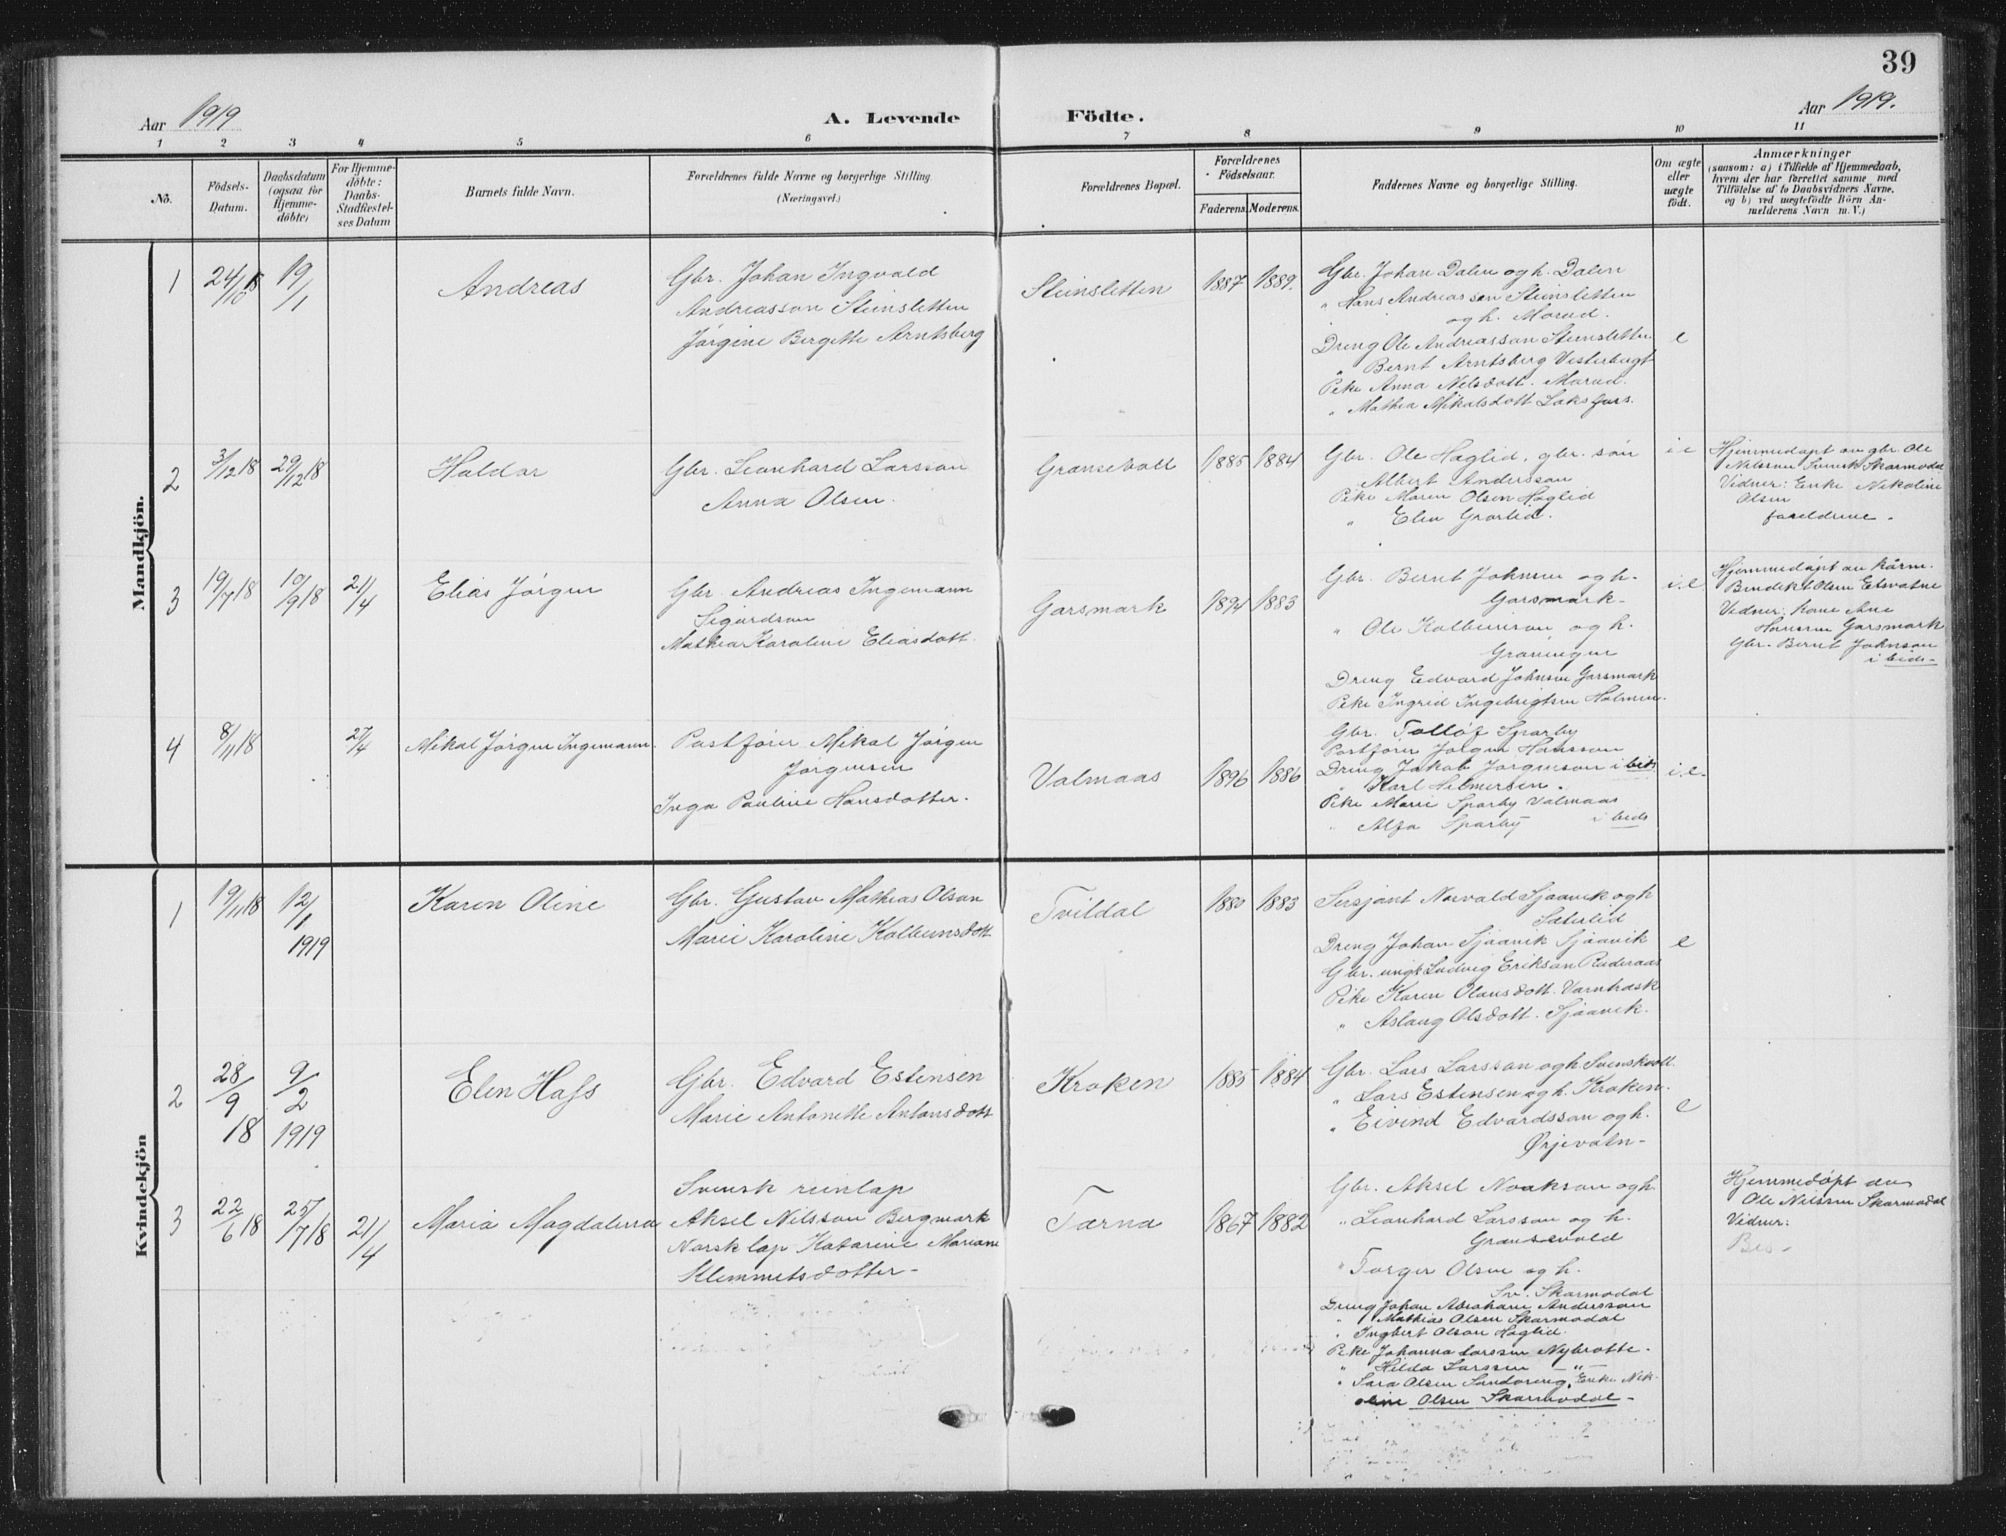 39
Aar 1919
A. Levende Födte.
Aar 1919.
1 2 3 4 5 6 7 8 9 10 11
No.
Födsels-
Datum.
Daabsdatum
(ogsaa for
Hjemme-
döbte)
For Hjemme-
döbte:
Daabs-
Stadfestel-
ses Datum
Barnets fulde Navn.
Forældrenes fulde Navne og borgerlige Stilling.
(Næringsvei.)
Forældrenes Bopæl.
Forældrenes
Födselsaar.
Faderens. Moderens.
Faddernes Navne og borgerlige Stilling.
Om ægte
eller
uægte
födt.
Anmærkninger
(saasom: a) i Tilfælde af Hjemmedaab,
hvem der har forrettet samme med
Tilföielse af to Daabsvidners Navne.
og b) ved uægtefödte Börn An-
melderens Navn m. V.)
Mandkjön.
1
24/10 18
19/1
Andreas
Gbr. Johan Ingvald
Andreasson Steinsletten
Jørgine Bergitte Arntsberg
Steinsletten
1887 1889.
Gbr. Johan Dalen og h. Dalen
" Hans Andreassen Steinsletten
og h. Morud.
Dreng Ole Andreasson Steinsletten
" Bernt Arntsberg Vesterbugt
Pike Anna Nelsdott. Morud.
" Mathea Mikalsdott Laksfors.
e
2
3/12 18
29/12 18
Haldor
Gbr. Leonhard Larsson
Anna Olsen.
Gransebolt
1885 1884
Gbr. Ole Haglid, gbr. søn
Albert Andersson
Pike Maren Olsen Haglid
" Elen Grovlid.
i e
Hjemmedøpt av gbr. Ole
Nilssen Svensk Skarmodal
Vidner: Enke Nikoline
Olsen
foreldrene.
3
19/7 18
10/9 18
21/4
Elias Jørgen
Gbr. Andreas Ingemann
Sigurdson
Mathea Karoline Eliasdott
Garsmark
1894 1883
Gbr. Bernt Johnsen og h.
Garsmark-
" Ole Kolbeinson og h.
Graningen
Dreng Edvard Johnsen Garsmark
Pike Ingrid Ingebrigtsen Holmen.
i.e
Hjemmedøpt av
Bendikt Olsen
Vidner: kone Ane
Hansen Garsmark
Gbr. Bernt Johnson
i beds-
4
8/11 18
27/4
Mikal Jørgen Ingemann.
Postfører Mikal Jørgen
Jørgensen
Inga Pauline Hansdotter.
Valmaas
1896 1886
Gbr. Tolløf Sparby
Postfører Jørgen Hansson
Dreng Jakob Jørgenson i beds
" Karl Helmersen.
Pike Marie Sparby Valmaas
" Alfa Sparby i beds
i.e.
Kvindekjön
1
19/11 18
12/1
1919
Karen Oline
Gbr. Gustav Mathias Olsen
Marie Karoline Kolbeinsdott
Tvildal
1880 1883
Sersjant Norvald Sjaavik og h
Sæterlid
Dreng Johan Sjaavik Sjaavik
Gbr. ungk Ludvig Erikson Ruderaas
Pike Karen Olausdott. Varntræsk
" Aslaug Olsdott. Sjaavik.
e
2
28/9
18
9/2
1919
Elen Hafs
Gbr. Edvard Estensen
Marie Antonette Antonsdott
Kroken
1885 1884
Gbr. Lars Larsson og h Svenskvoll
" Lars Estensen og h. Kroken.
" Eivind Edvardsson og h.
Ørjevatn-
e
3
22/6 18
25/7 18
21/4
Maria Magdalena
Svensk reinlap
Aksel Nilsson Bergmark
Norsk lap Katarine Mariane
Klemmetsdotter-
Tærna
1867 1882
Gbr. Aksel Noakson og h
" Leonhard Larsson og h.
Gransevold
" Torger Olsen og h.
Sv. Skarmodal
Dreng Johan Abraham Andersson
" Mathias Olsen Skarmodal
" Ingbert Olson Haglid.
Pike Johanna Larsen Nybrotte.
" Hilda Larsen — " —
" Sara Olsen Sandvreng, Enke Nik-
oline Olsen Skarmodal-
Hjemmedøpt av
Ole Nilssen Skarmodal
Vidner: